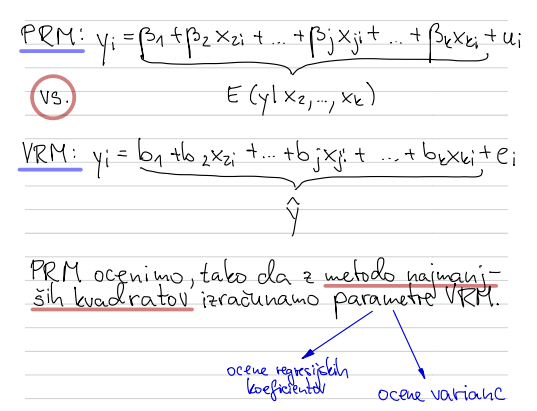 PRM: yi = β1 + β2 x2i + ... + βj xji + ... + βk xki + ui
vs.
E (y|x2, ..., xk)
VRM: yi = b1 + b2 x2i + ... + bj xji + ... + bk xki + ei
ŷ
PRM ocenimo, tako da z metodo najmanj-
ših kvadratov izračunamo parametre VRM.
ocene regresijskih
koeficientov
ocene varianc